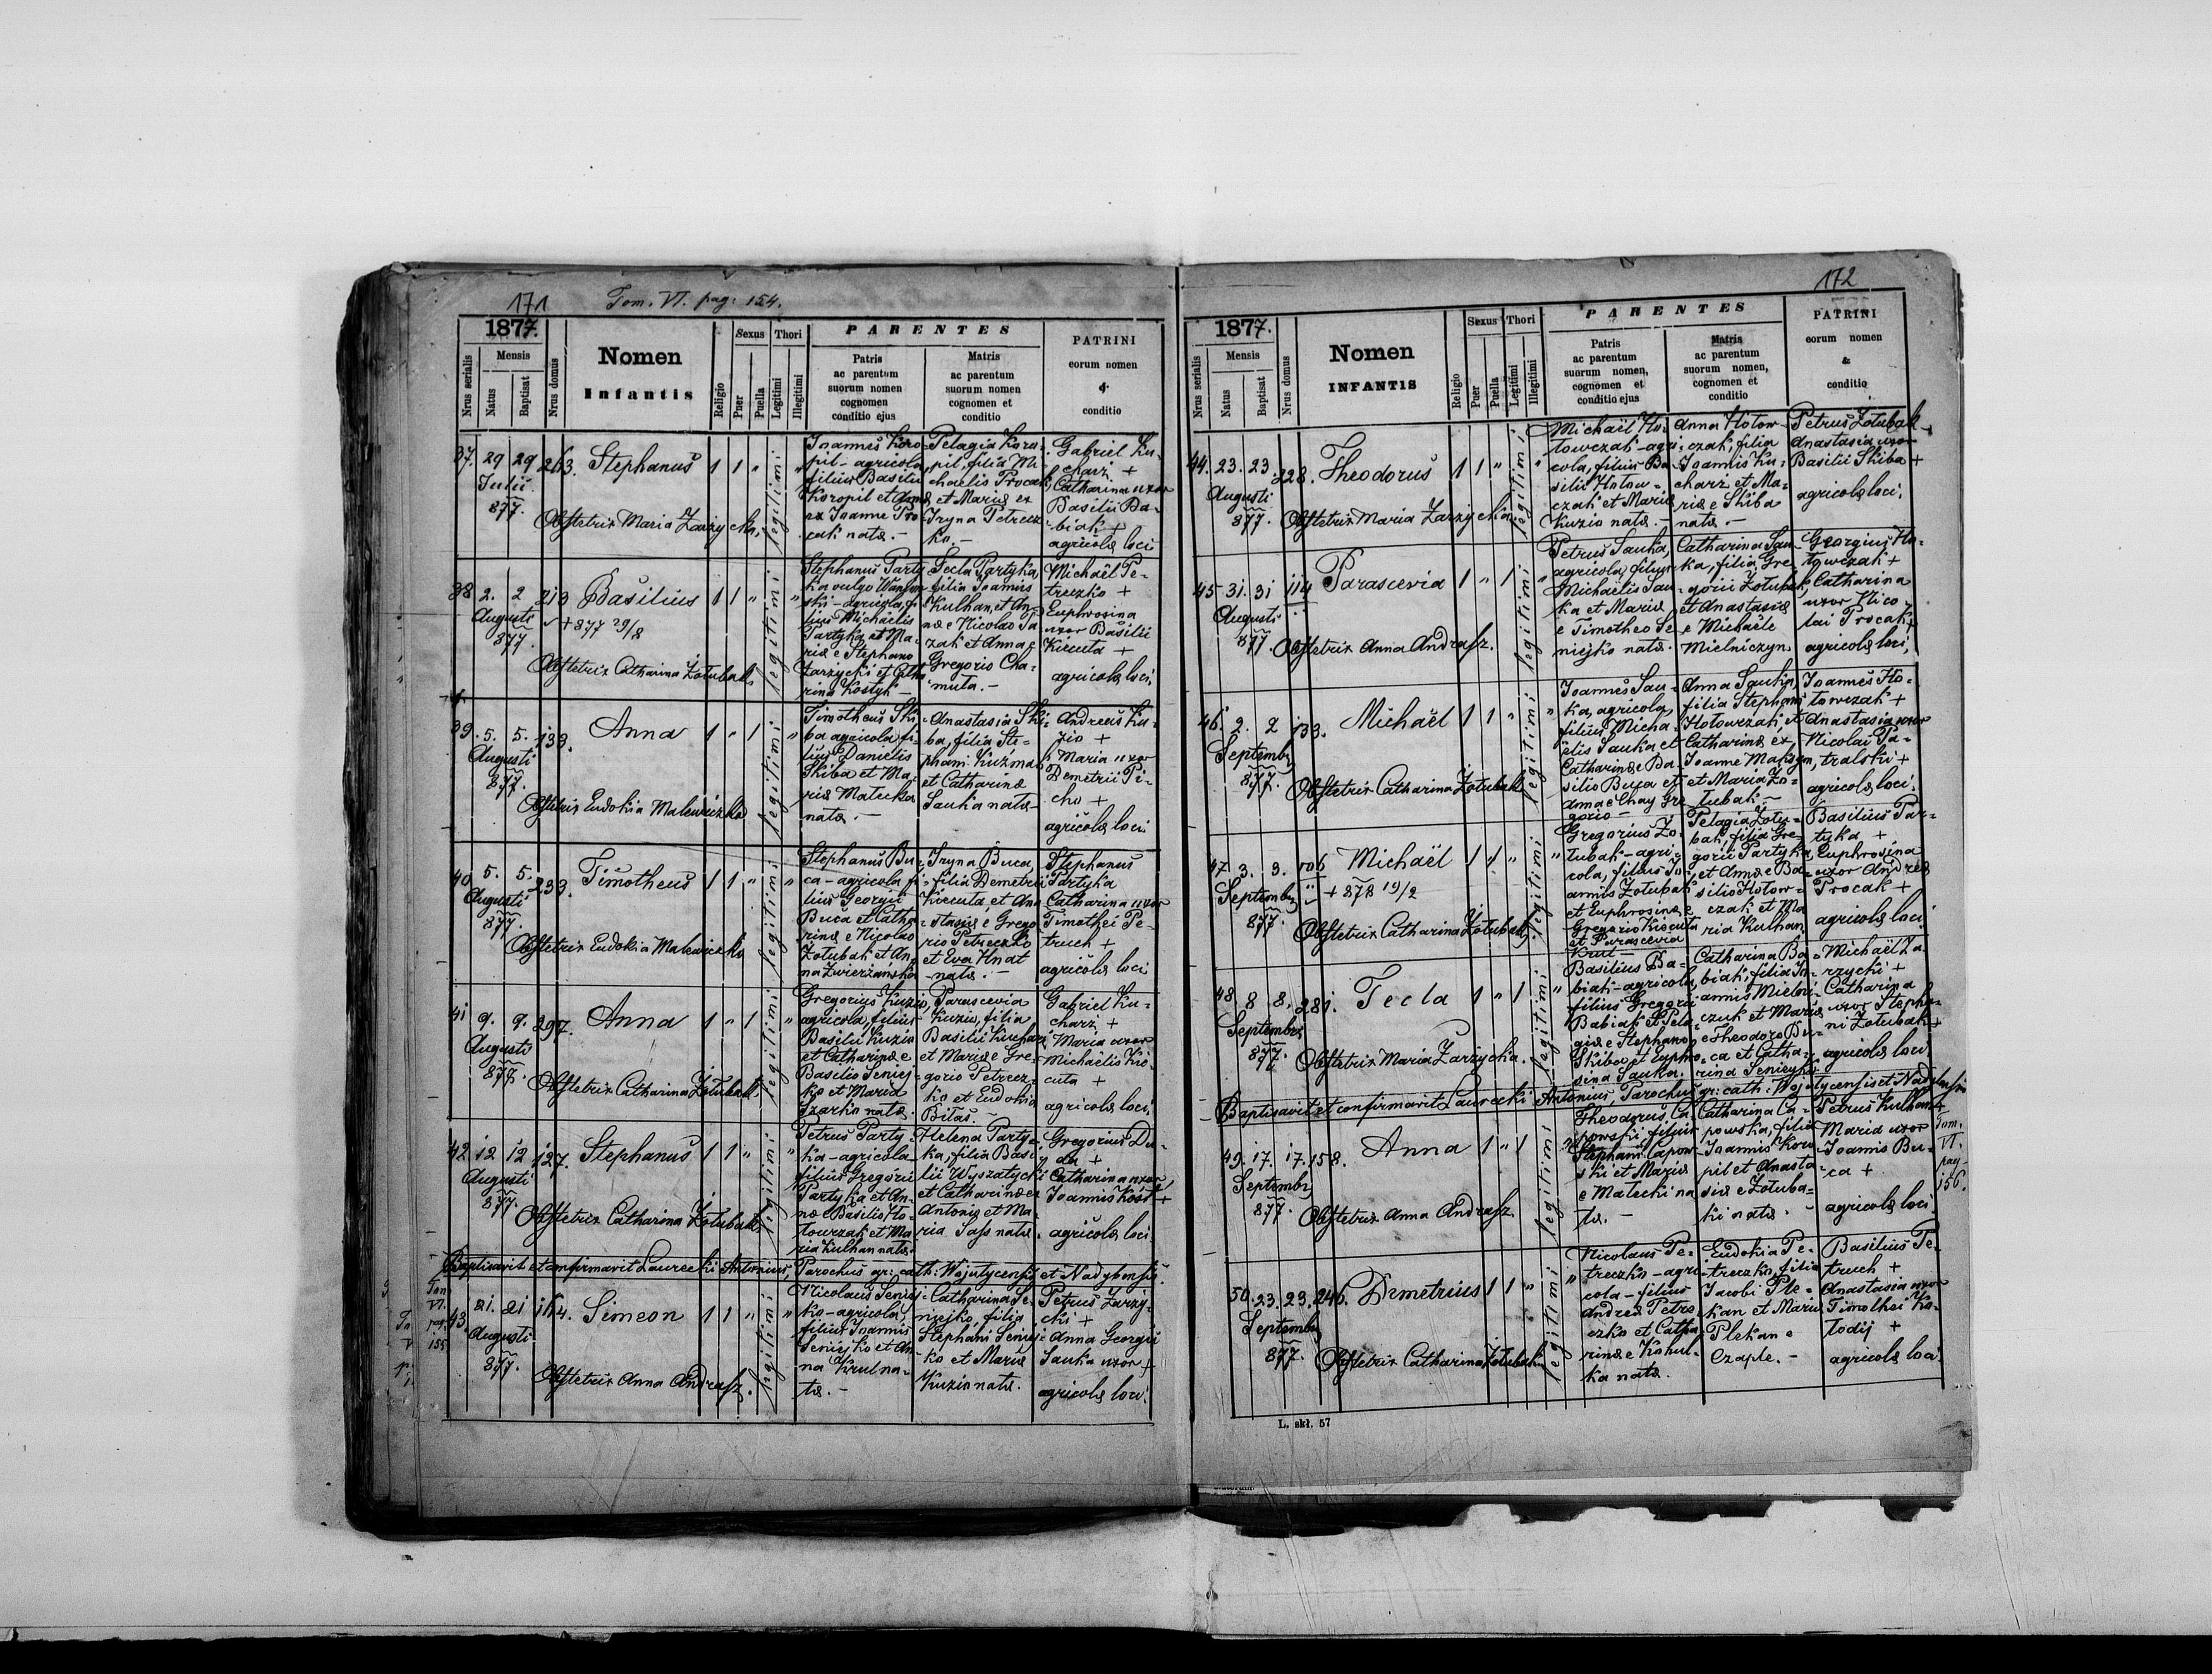 171
Tom. VI. pag: 154.
1877.
Nrus serialis
Mensis
Natus
Baptisat
Nrus domus
Nomen
Infantis
Religio
Sexus
Puer
Puella
Thori
Legitimi
Illegitimi
PARENTES
Patris
ac parentum
suorum nomen
cognomen
conditio ejus
Matris
ac parentum
suorum nomen
cognomen et
conditio
PATRINI
eorum nomen
&
conditio
37. 29 29 263. Stephanus 1 1 "
Julii
877.
Obstetrix Maria Zarzycka
legitimi
Joannes Koro-
pil - agricola,
filius Basilii
Koropil et Annæ
ex Joanne Pro-
cak natæ. -
Pelagia Koro-
pil, filia Mi-
chaelis Procak
et Mariæ ex
Iryna Petrecz-
ko. -
Gabriel Ku-
charz +
Catharina uxor
Basilii Ba-
biak +
agricolæ loci
38 2. 2 213 Basilius 1 1 "
Augusti + 877 29/8
877
Obstetrix Catharina Zołubak
legitimi
Stephanus Party-
ka vulgo
ski - agricola, fi-
lius Michaelis
Partyka et Ma-
riæ e Stephano
Zarzycki et Catha-
rina Kostyk -
Tecla Partyka,
filia Joannis
Kulhan, et An-
næ e Nicolao Sa-
zak et Anna e
Gregorio Cha-
muta. -
Michaël Pe-
treczko +
Euphrosina
uxor Basilii
Kiecuta +
agricolæ loci,
39. 5. 5. 133. Anna 1 " 1
Augusti
877.
Obstetrix Eudokia Malewiczka
legitimi
Timotheus Ski-
ba agricola, fi-
lius Danielis
Skiba et Ma-
riæ Matecka
natæ. -
Anastasia Ski-
ba, filia Ste-
phani Kuzma
et Catharinæ
Sauka natæ
Andreas Ku-
zio +
Maria uxor
Demetrii Pi-
cho +
agricolæ loci
40 5. 5. 233. Timotheus 1 1 "
Augusti
877.
Obstetrix Eudokia Malewiczka
legitimi
Stephanus Bu-
ca - agricola fi-
lius Georgii
Buca et Catha-
rinæ e Nicolao
Zołubak et An-
na Zwierzańska
Iryna Buca,
filia Demetrii
Kiecuta et Ana-
stasiæ e Grego-
rio Petreczko
et Eva Hnat
natæ. -
Stephanus
Partyka
Catharina uxor
Timothei Pe-
truch +
agricolæ loci
41 9. 9. 297. Anna 1 " 1
Augusti
877.
Obstetrix Catharina Zołubak
legitimi
Gregorius Kuzio,
agricola, filius
Basilii Kuzio
et Catharinæ e
Basilio Seniej-
ko et Maria
Szarko natæ.
Parascevia
Kuzio, filia
Basilii Kuchar
et Mariæ e Gre-
gorio Petrecz-
ko et Eudokia
Bilas. -
Gabriel Ku-
charz +
Maria uxor
Michaelis Kie-
cuta +
agricolæ loci,
42. 12 12 127. Stephanus 1 1 "
Augusti
877.
Obstetrix Catharina Zołubak
legitimi
Petrus Party-
ka - agricola
filius Gregorii
Partyka et An-
næ e Basilio Ho-
towczak et Ma-
ria Kulhan natæ.
Helena Party-
ka, filia Basi-
lii Wyszatycki
et Catharinæ ex
Antonio et Ma-
ria Sass natæ.
Gregorius Du-
da +
Catharina uxor
Joannis Kost +
agricolæ loci.
Baptisavit et confirmavit Laurecki Antonius, Parochus gr: cath: Wojutycensis et Nadybensis.
Tom
VI.
pag.
155
43. 21. 21 164. Simeon 1 1 "
Augusti
877.
Obstetrix Anna Andrasz.
legitimi
Nicolaus Seniej-
ko - agricola,
filius Joannis
Seniejko et An-
na Krul na-
tæ. -
Catharina Se-
niejko, filia
Stephani Seniej-
ko et Mariæ
Kuzio natæ.
Petrus Zarzy-
cki +
Anna Georgii
Sauka uxor +
agricolæ loci.
172
1877.
Nrus serialis
Mensis
Natus
Baptisat
Nrus domus
Nomen
INFANTIS
Religio
Sexus
Puer
Puella
Thori
Legitimi
Illegitimi
PARENTES
Patris
ac parentum
suorum nomen,
cognomen et
conditio ejus
Matris
ac parentum
suorum nomen,
cognomen et
conditio
PATRINI
eorum nomen
&
conditio
44. 23. 23. 228. Theodorus 1 1 "
Augusti
877.
Obstetrix Maria Zarzycka
legitimi
Michaël Ho-
towczak - agri-
cola, filius Ba-
silii Hotow-
czak et Mariæ
Kuzio natæ. -
Anna Hotow-
czak, filia
Joannis Ku-
charz et Ma-
riæ e Skiba
natæ. -
Petrus Zołubak
Anastasia uxor
Basilii Skiba +
agricolæ loci,
45. 31. 31 114 Parascevia 1 " 1
Augusti
877.
Obstetrix Anna Andrasz.
legitimi
Petrus Sauka,
agricola, filius
Michaelis Sau-
ka et Mariæ
e Timotheo Se-
niejko natæ.
Catharina Sau-
ka, filia Gre-
gorii Zołubak,
et Anastasiæ
e Michaële
Mielniczyn
Georgius Ho-
towczak +
Catharina
uxor Nico-
lai Procak +
agricolæ loci,
46. 2. 2 133. Michaël 1 1 "
Septembr
877.
Obstetrix Catharina Zołubak
legitimi
Joannes Sau-
ka, agricola,
filius Micha-
ëlis Sauka et
Catharinæ e Ba-
silio Buca et
Anna e Chay Gre-
gorio -
Anna Sauka,
filia Stephani
Hotowczak et
Catharinæ ex
Joanne Maksym,
et Maria Zo-
łubak -
Joannes Ho-
towczak +
Anastasia uxor
Nicolai Pa-
tralski +
agricolæ loci.
47. 3. 3. 106 Michaël 1 1 "
Septembr + 878 19/2
877.
Obstetrix Catharina Zołubak
legitimi
Gregorius Zo-
łubak - agri-
cola, filius Jo-
annis Zołubak
et Euphrosinæ e
Gregorio Kiecuta
et Parascevia
Krut -
Pelagia Zołu-
bak, filia Gre-
gorii Partyka,
et Annæ e Ba-
silio Hotow-
czak et Ma-
ria Kulhan
Basilius Par-
tyka +
Euphrosina
uxor Andreæ
Procak +
agricolæ loci
48. 8 8. 281. Tecla 1 " 1
Septembr
877.
Obstetrix Maria Zarzycka.
legitimi
Basilius Ba-
biak - agricola,
filius Gregorii
Babiak et Pela-
giæ e Stephano
Skiba et Euphro-
sina Sauka.
Catharina Ba-
biak, filia Jo-
annis Mielni-
czuk et Mariæ
e Theodoro Bu-
ca et Catha-
rina Seniejko
Michaël Za-
rzycki +
Catharina
uxor Stepha-
ni Zołubak +
agricolæ loci
Baptisavit et confirmavit Laurecki Antonius, Parochus gr: cath: Wojutycensis et Nadybensis
49. 17. 17. 158. Anna 1 " 1
Septembr
877.
Obstetrix Anna Andrasz
legitimi
Theodorus Ca-
powski, filius
Stephani Capow-
ski et Mariæ
e Matecki na-
tæ. -
Catharina Ca-
powska, filia
Joannis Koro-
pil et Anasta-
siæ e Zołuba-
ki natæ. -
Petrus Kulhan +
Maria uxor
Joannis Bu-
ca +
agricolæ loci
Tom.
VI.
pag.
156.
50. 23. 23. 246. Demetrius 1 1 "
Septembr
877.
Obstetrix Catharina Zołubak
legitimi
Nicolaus Pe-
treczko - agri-
cola - filius
Andreæ Petre-
czko et Catha-
rinæ e Kohul-
ka natæ.
Eudokia Pe-
treczko, filia
Jacobi Ple-
kan et Mariæ
Plekan e
Czaple. -
Basilius Pe-
truch +
Anastasia uxor
Timothei Ko-
łodij +
agricolæ loci.
L. skł. 57